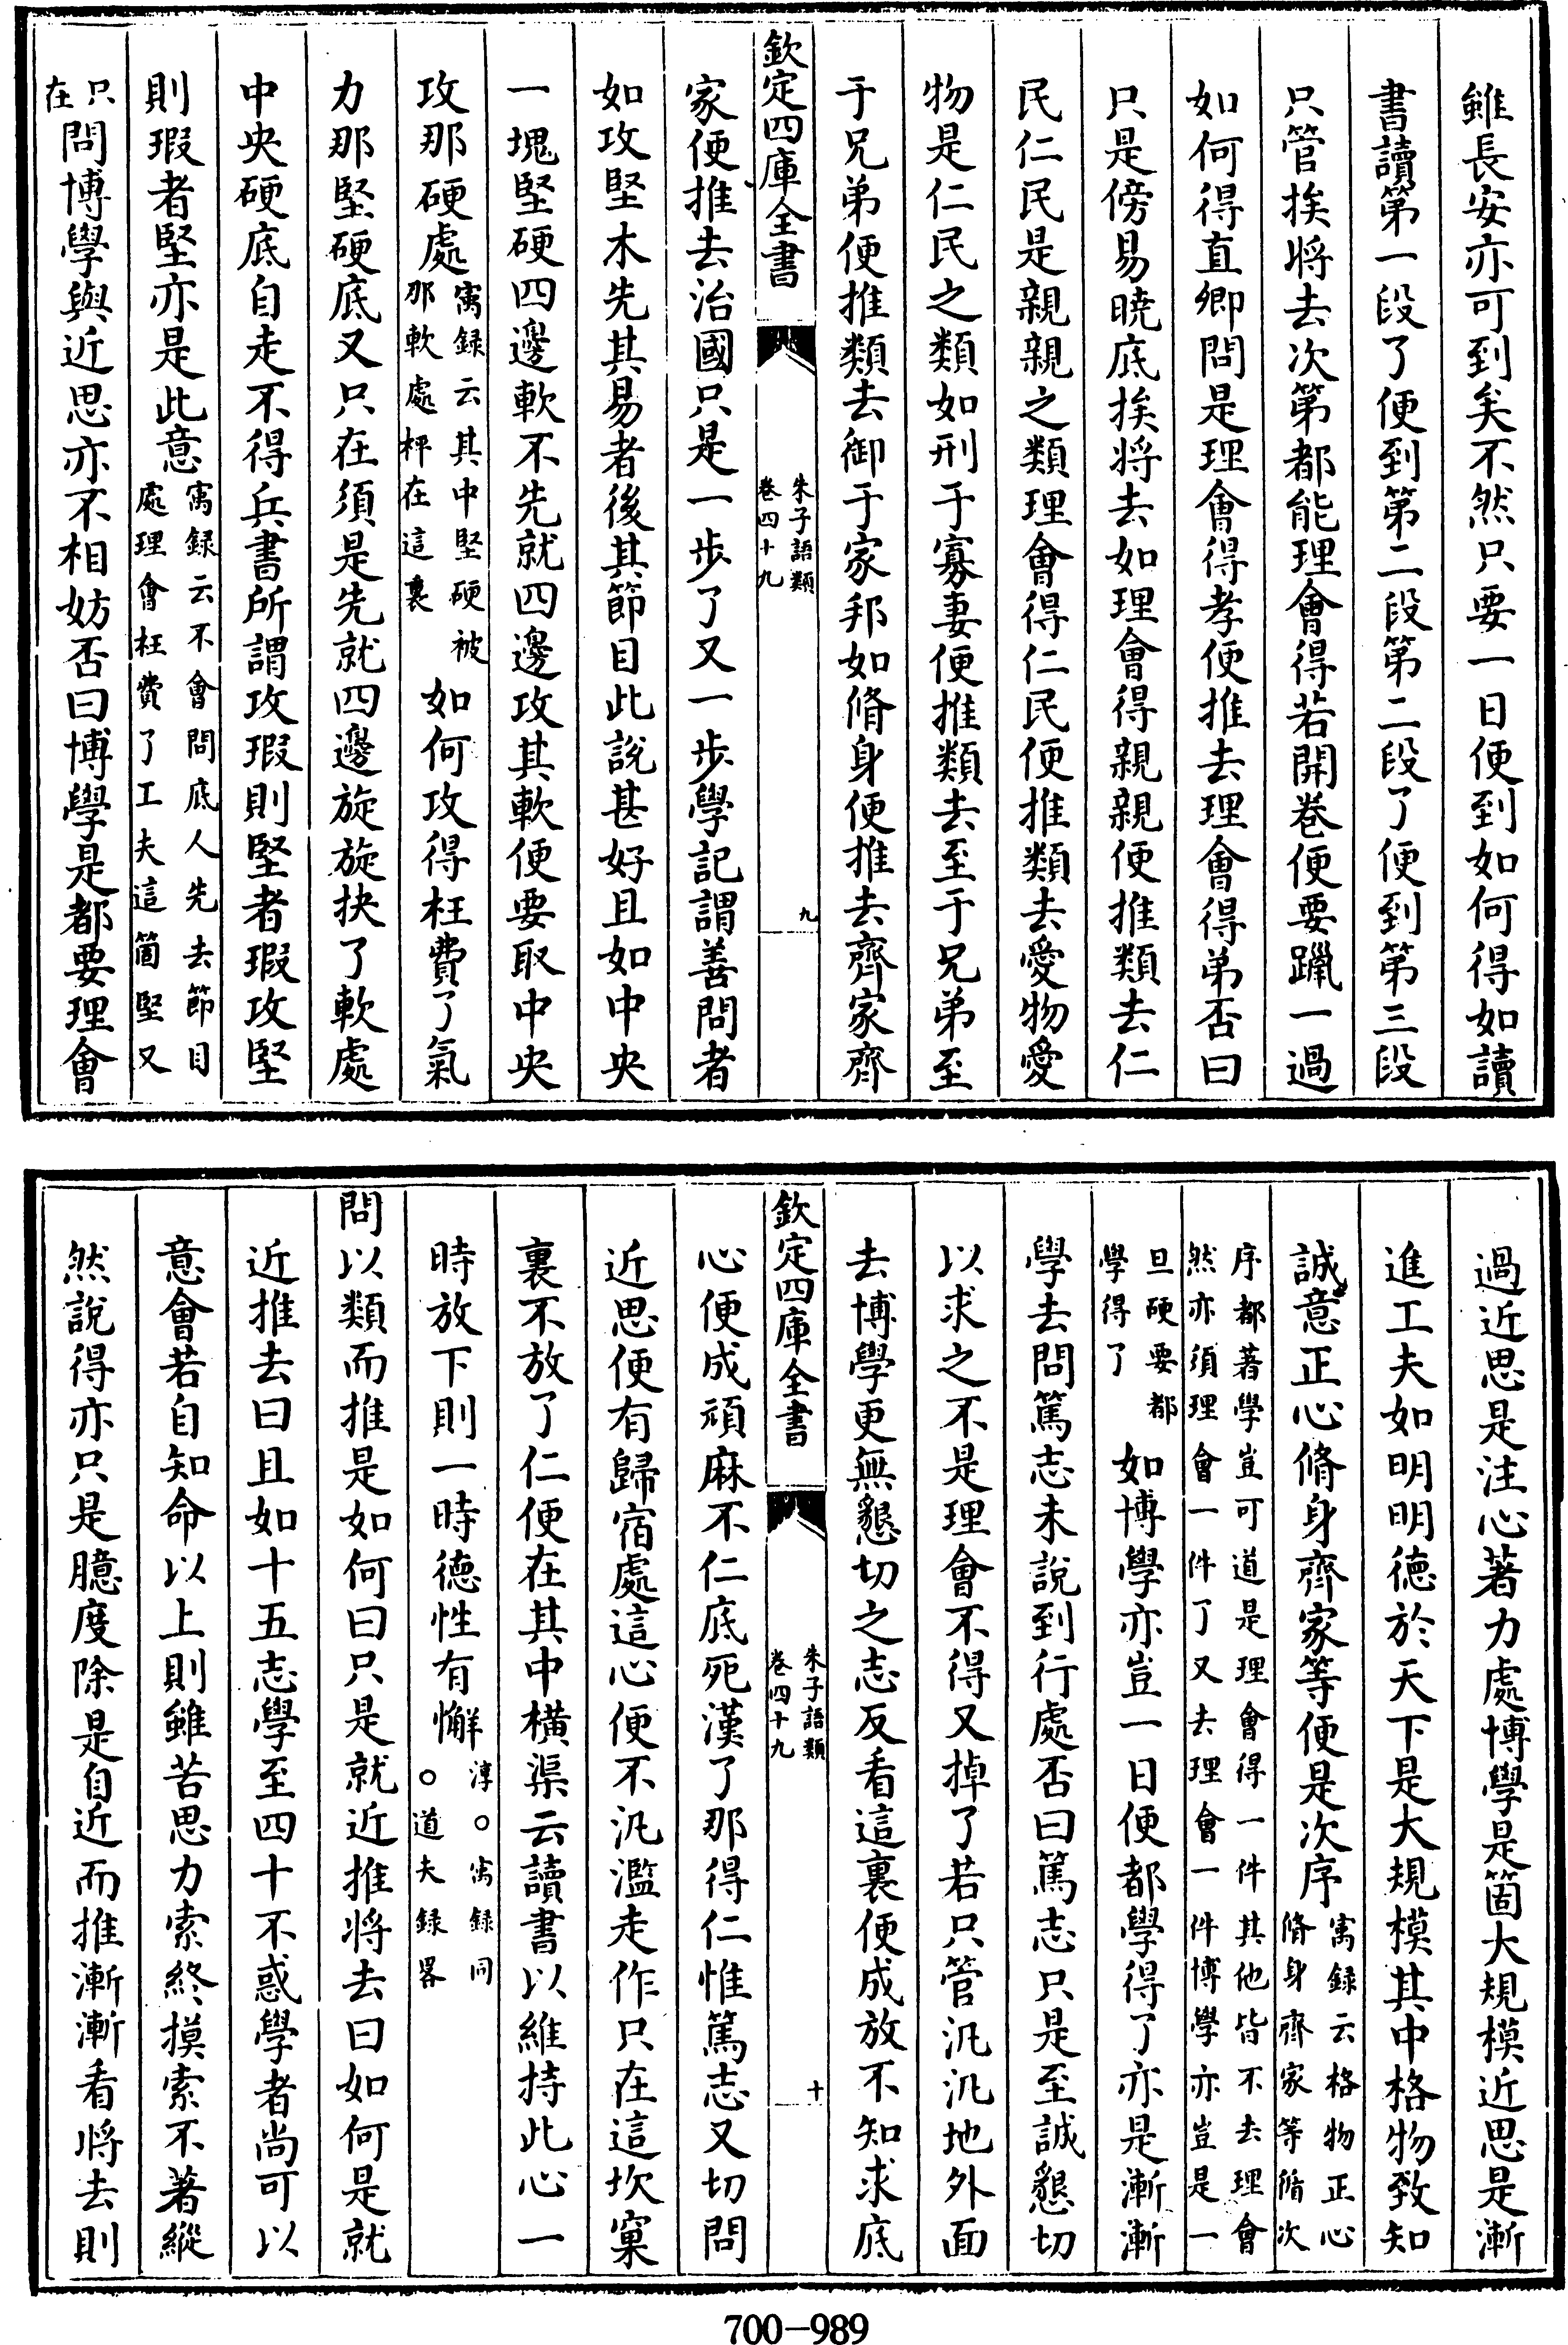 雖長安亦可到矣不然只要一日便到如何得如讀
書讀第一段了便到第二段第二段了便到第三段
只管挨將去次第都能理會得若開卷便要躐一過
如何得直卿問是理會得孝便推去理會得弟否曰
只是傍易曉底挨將去如理會得親親便推類去仁
民仁民是親親之類理會得仁民便推類去愛物愛
物是仁民之類如刑于寡妻便推類去至于兄弟至
于兄弟便推類去御于家邦如脩身便推去齊家齊
欽定四庫全書
朱子語類
卷四十九
九
家便推去治國只是一步了又一步學記謂善問者
如攻堅木先其易者後其節目此說甚好且如中央
一塊堅硬四邊軟不先就四邊攻其軟便要取中央
攻那硬處寓録云其中堅硬被那軟處枰在這裏如何攻得枉費了氣
力那堅硬底又只在須是先就四邊旋旋抉了軟處
中央硬底自走不得兵書所謂攻瑕則堅者瑕攻堅
則瑕者堅亦是此意寓録云不會問底人先去節目處理會枉費了工夫這箇堅又
只在問博學與近思亦不相妨否曰博學是都要理會
過近思是注心著力處博學是箇大規模近思是漸
進工夫如明明德於天下是大規模其中格物致知
誠意正心脩身齊家等便是次序寓録云格物正心脩身齊家等循次
序都著學豈可道是理會得一件其他皆不去理會然亦須理會一件了又去理會一件博學亦豈是一
旦硬要都學得了如博學亦豈一日便都學得了亦是漸漸
學去問篤志未說到行處否曰篤志只是至誠懇切
以求之不是理會不得又掉了若只管汎汎地外面
去博學更無懇切之志反看這裏便成放不知求底
欽定四庫全書
朱子語類
卷四十九
十
心便成頑麻不仁底死漢了那得仁惟篤志又切問
近思便有歸宿處這心便不汎濫走作只在這坎窠
裏不放了仁便在其中橫渠云讀書以維持此心一
時放下則一時德性有懈淳○寓録同○道夫録畧
問以類而推是如何曰只是就近推將去曰如何是就
近推去曰且如十五志學至四十不惑學者尚可以
意會若自知命以上則雖苦思力索終摸索不著縱
然說得亦只是臆度除是自近而推漸漸看將去則
700-989